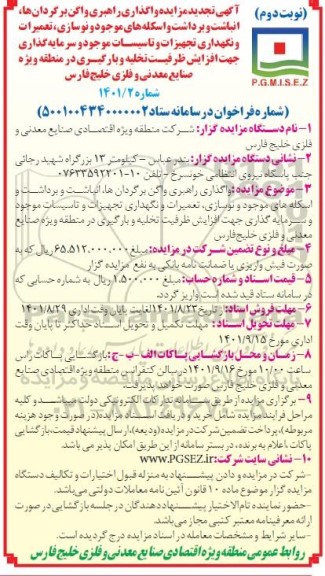 (نوبت دوم)
P.G.M.I.S.E.Z
آگهی تجدید مزایده واگذاری راهبری واگن برگردان‌ها،
انباشت و برداشت و اسکله های موجود و نوسازی، تعمیرات
و نگهداری تجهیزات و تاسیسات موجود و سرمایه گذاری
جهت افزایش ظرفیت تخلیه و بارگیری در منطقه ویژه
صنایع معدنی و فلزی خلیج فارس
شماره ۱۴۰۱/۲
(شماره فراخوان در سامانه ستاد ۵۰۰۱۰۰۴۳۴۰۰۰۰۰۰۲)
۱- نام دستگاه مزایده گزار: شرکت منطقه ویژه اقتصادی صنایع معدنی و
فلزی خلیج فارس
۲- نشانی دستگاه مزایده گزار: بندرعباس - کیلومتر ۱۳ بزرگراه شهید رجائی
جنب پاسگاه نیروی انتظامی خونسرخ - تلفن ۱۰-۰۷۶۳۳۵۹۲۲۰۱
۳- موضوع مزایده: واگذاری راهبری واگن برگردان ها، انباشت و برداشت و
اسکله های موجود و نوسازی، تعمیرات و نگهداری تجهیزات و تاسیسات موجود
و سرمایه گذاری جهت افزایش ظرفیت تخلیه و بارگیری در منطقه ویژه صنایع
معدنی و فلزی خلیج فارس
۴- مبلغ و نوع تضمین شرکت در مزایده: مبلغ ۶۵.۵۱۲.۰۰۰.۰۰۰ ریال که به
صورت فیش واریزی یا ضمانت نامه بانکی به نفع مزایده گزار
۵- قیمت اسناد و شماره حساب: مبلغ ۱.۵۰۰.۰۰۰ ریال به شماره حسابی که
در سامانه ستاد قید شده است واریز گردد.
۶- مهلت فروش اسناد: از تاریخ ۱۴۰۱/۸/۲۳ لغایت پایان وقت اداری ۱۴۰۱/۸/۲۹
۷- مهلت تحویل اسناد: مهلت تکمیل و تحویل اسناد حداکثر تا پایان وقت
اداری مورخ ۱۴۰۱/۹/۱۵
۸- زمان و محل بازگشایی پاکات الف - ب - ج: بازگشایی پاکات راس
ساعت ۱۰/۰۰ مورخ ۱۴۰۱/۹/۱۶ در سالن کنفرانس منطقه ویژه اقتصادی صنایع
معدنی و فلزی خلیج فارس صورت خواهد پذیرفت.
۹- برگزاری مزایده از طریق سامانه تدارکات الکترونیکی دولت می‌باشد و کلیه
مراحل فرایند مزایده شامل خرید و دریافت اسناد مزایده (در صورت وجود هزینه
مربوطه)، پرداخت تضمین شرکت در مزایده (ودیعه)، ارسال پیشنهاد قیمت، بازگشایی
پاکات، اعلام به برنده، در بستر سامانه از این طریق امکان پذیر می باشد.
۱۰- نشانی سایت شرکت: www.PGSEZ.ir
-شرکت در مزایده و دادن پیشنهاد به منزله قبول اختیارات و تکالیف دستگاه
مزایده گزار موضوع ماده ۱۰ قانون آئین نامه معاملات دولتی می‌باشد.
-حضور نماینده تام الاختیار پیشنهاددهندگان در جلسه بازگشایی در صورت
ارائه معرفینامه معتبر کتبی مجاز می‌باشد.
-سایر شرایط و مشخصات معامله در اسناد مزایده درج گردیده است.
روابط عمومی منطقه ویژه اقتصادی صنایع معدنی و فلزی خلیج فارس